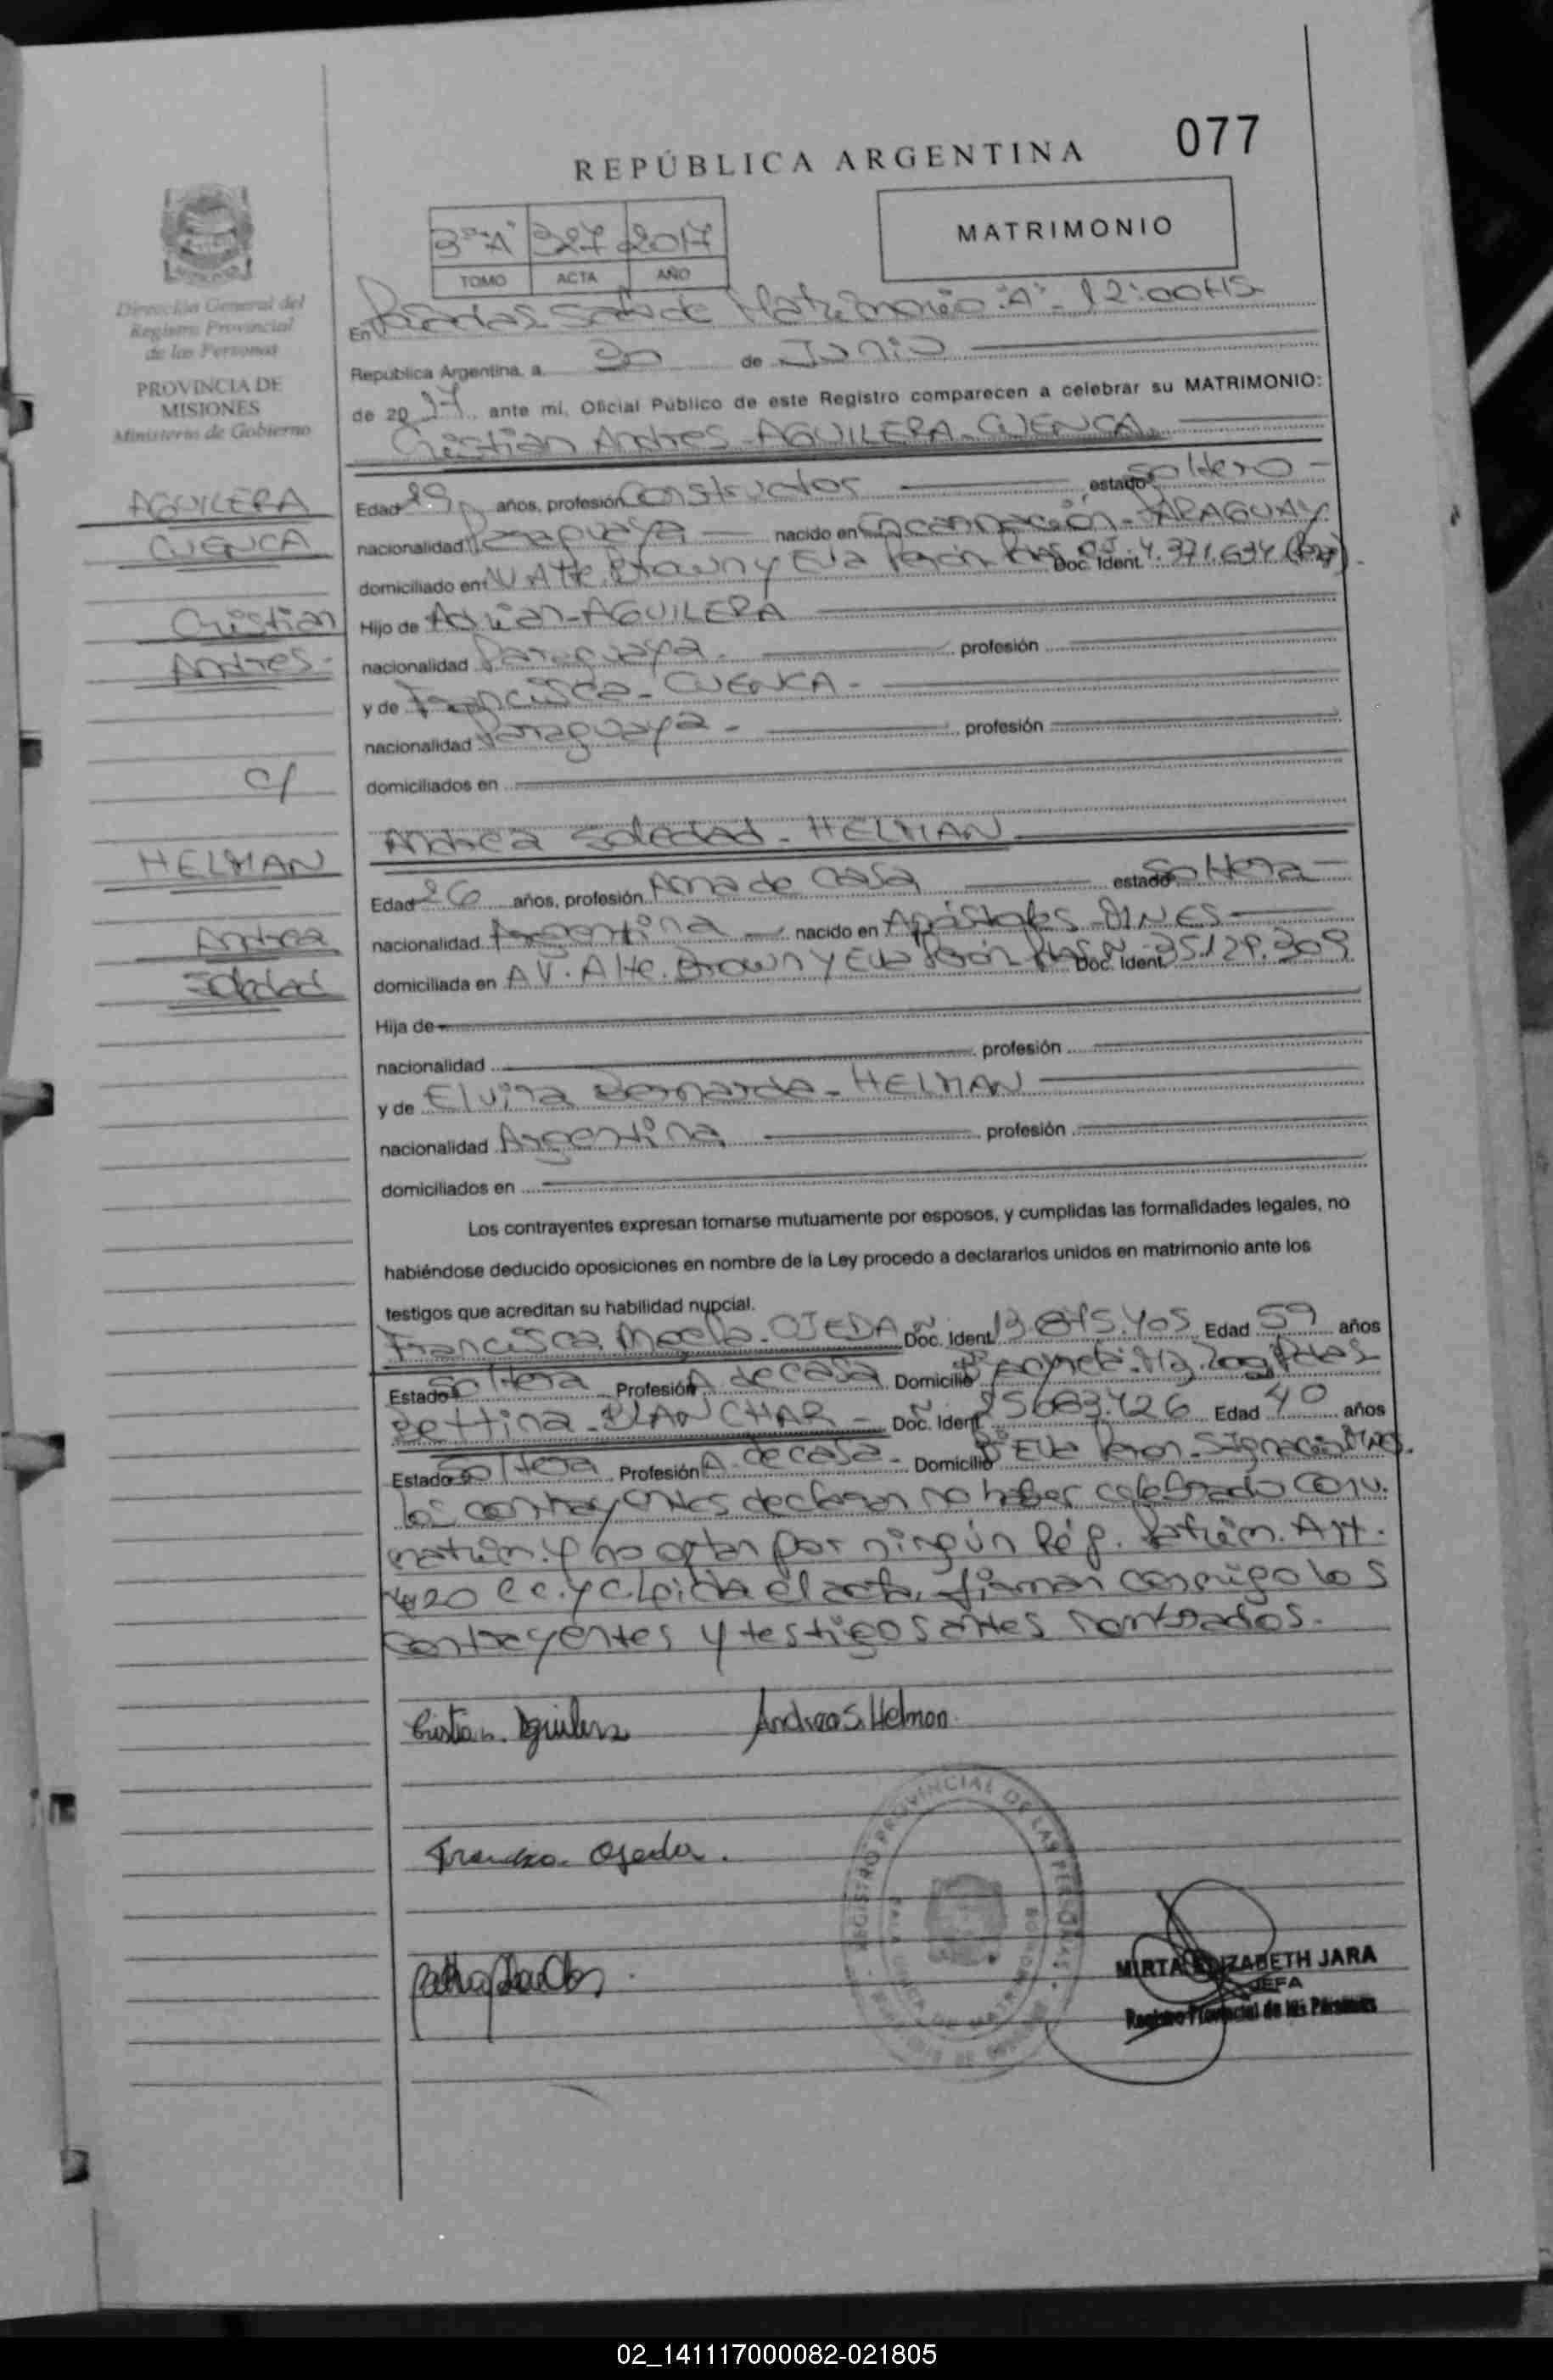 077
REPÚBLICA ARGENTINA
MATRIMONIO
3º "A" 327 2017
TOMO ACTA AÑO
Dirección General del
Registro Provincial
de las Personas
PROVINCIA DE
MISIONES
Ministerio de Gobierno
En Posadas Sala de Matrimonio "A" - 12:00HS
Republica Argentina, a de Junio
de 2017 ante mi, Oficial Público de este Registro comparecen a celebrar su MATRIMONIO:
Cristian Andres - AGUILERA - CUENCA.
AGUILERA
CUENCA
Cristian
Andres -
c/
HELMAN
Andrea
Soledad
Edad 29 años, profesión Constructor estado Soltero -
nacionalidad Paraguaya nacido en Encarnación - PARAGUAY
domiciliado en Av. Alte. Brown y Eva Perón Doc. Ident. C.I. 4.371.634 (Pay).
Hijo de Adrian - AGUILERA
nacionalidad Paraguaya. profesión
y de Francisca - CUENCA -
nacionalidad Paraguaya - profesión
domiciliados en
Andrea Soledad - HELMAN
Edad 26 años, profesión Ama de casa estado Soltera -
nacionalidad Argentina nacido en Apóstoles -
domiciliada en AV. Alte. Brown y Eva Perón Doc. Ident. 35.129.309
Hija de
nacionalidad profesión
y de Elvira Bernarda - HELMAN
nacionalidad Argentina profesión
domiciliados en
Los contrayentes expresan tomarse mutuamente por esposos, y cumplidas las formalidades legales, no
habiéndose deducido oposiciones en nombre de la Ley procedo a declararlos unidos en matrimonio ante los
testigos que acreditan su habilidad nupcial.
Francisca - OJEDA Doc. Ident. 13.845.405 Edad 59 años
Estado Soltera Profesión A. de casa Domicilio
Bettina - BLANCHAR - Doc. Ident. 25683.426 Edad 40 años
Estado Soltera Profesión A. de casa - Domicilio Bº Eva Peron -
los contrayentes declaran no haber celebrado conv.
matrim. y no optan por ningún Rég. Patrim. Art.
420 C.C. y C. Leída el acta, firman conmigo los
contrayentes y testigos antes nombrados.
Cristian Aguilera Andrea S. Helman
Francisca Ojeda.
REGISTRO PROVINCIAL DE LAS PERSONAS
MIRTA ELIZABETH JARA
JEFA
Registro Provincial de las Personas
02_141117000082-021805